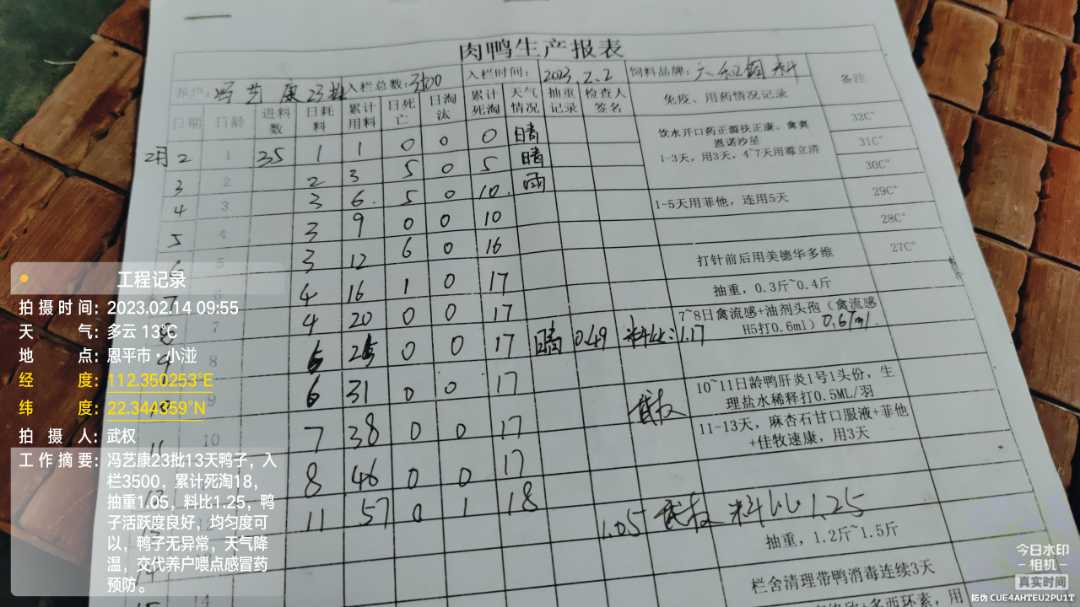 肉鸭生产报表
冯艺康23批 入栏总数:3500 入栏时间: 2023.2.2 饲料品牌: 六和 料 备注
日期 日龄 进料数 日耗料 累计用料 日死亡 日淘汰 累计死淘 天气情况 抽重记录 检查人签名 免疫、用药情况记录
2月2 1 35 1 1 0 0 0 晴 32C°
1-3天,用3天,4~7天用
3 2 2 3 5 0 5 晴 31C°
4 3 3 6 5 0 10 雨 30C°
5 4 3 9 0 0 10 1-5天用菲他,连用5天 29C°
5 3 12 6 0 16 28C°
4 16 1 0 17 打针前后用美德华多维 27C°
7 4 20 0 0 17 抽重,0.3斤~0.4斤
8 5 25 0 0 17 晴 0.49 料比:1.17 7~8日禽流感+油剂头孢(禽流感H5打0.6ml) 0.67ml
6 31 0 0 17
10 7 38 0 0 17 武权 10~11日龄鸭肝炎1号1头份,生理盐水稀释打0.5ML/羽
8 46 0 0 17 11-13天,麻杏石甘口服液+菲他+佳牧速康,用3天
11 57 0 1 18
1.05 武权 料比1.25
抽重,1.2斤~1.5斤
14 栏舍清理带鸭消毒连续3天
工程记录
拍摄时间:2023.02.14 09:55
天气:多云 13℃
地点:恩平市·小湴
经度:112.350253°E
纬度:22.344359°N
拍摄人:武权
工作摘要:冯艺康23批13天鸭子,入
栏3500,累计死淘18,
抽重1.05,料比1.25,鸭
子活跃度良好,均匀度可
以,鸭子无异常,天气降
温,交代养户喂点感冒药
预防。
今日水印
相机
真实时间
防伪 CUE4AHTEU2PU1T